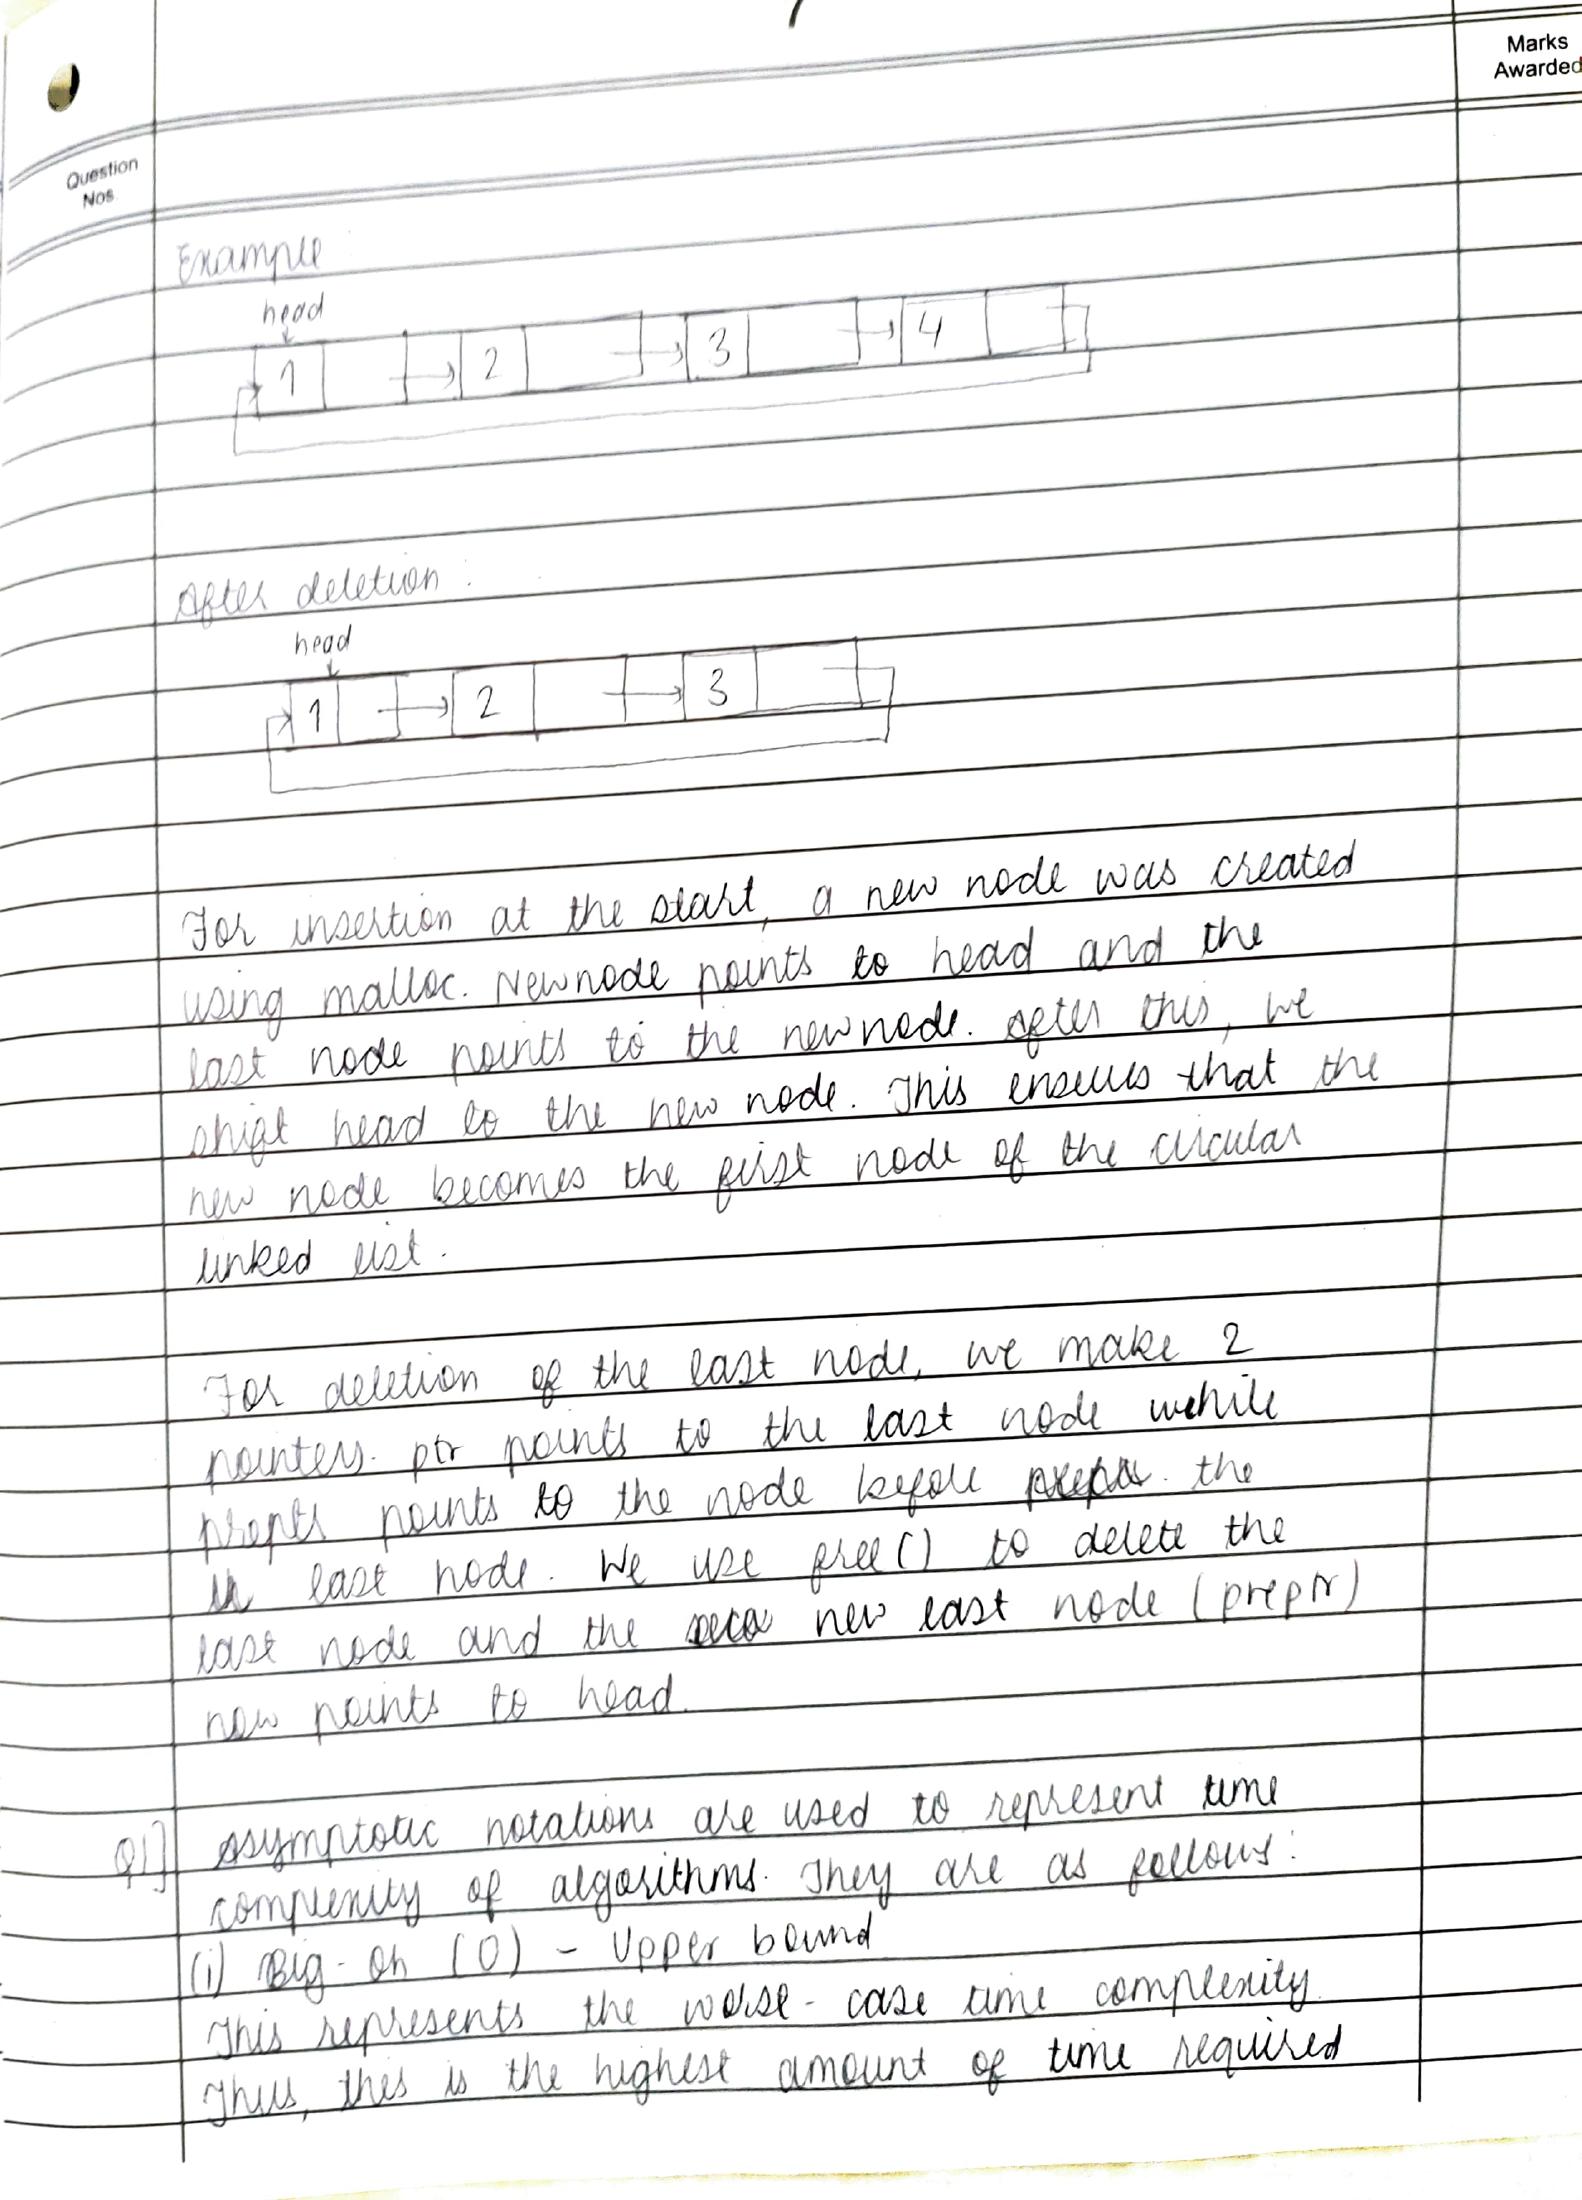 Marks
Awarded
Question
Nos.
Example
head
1 2 3 4
After deletion :
head
1 2 3
For insertion at the start, a new node was created
using malloc. Newnode points to head and the
last node points to the newnode. After this, we
shift head to the new node. This ensures that the
new node becomes the first node of the circular
linked list.
For deletion of the last node, we make 2
pointers. ptr points to the last node while
preptr points to the node before the
last node. We use free() to delete the
last node and the new last node (preptr)
now points to head.
Q1] Asymptotic notations are used to represent time
complexity of algorithms. They are as follows:
(i) Big-Oh (O) - Upper bound
This represents the worse-case time complexity.
Thus, this is the highest amount of time required